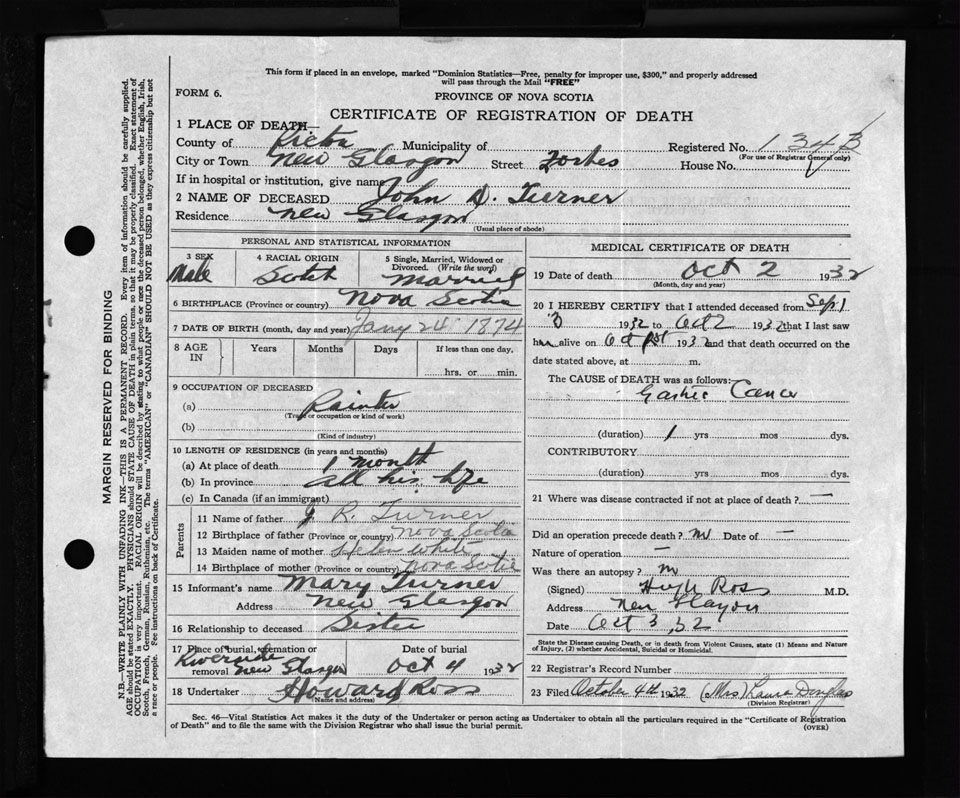 This form if placed in an envelope, marked "Dominion Statistics—Free, penalty for improper use, $300," and properly addressed
will pass through the Mail "FREE"
FORM 6.
PROVINCE OF NOVA SCOTIA
CERTIFICATE OF REGISTRATION OF DEATH
1 PLACE OF DEATH—
County of Pictou Municipality of Registered No. 1343
(For use of Registrar General only)
City or Town New Glasgow Street Forbes House No.
If in hospital or institution, give name
2 NAME OF DECEASED John D. Turner
Residence New Glasgow
(Usual place of abode)
PERSONAL AND STATISTICAL INFORMATION
3 SEX Male
4 RACIAL ORIGIN Scotch
5 Single, Married, Widowed or
Divorced. (Write the word)
Married
6 BIRTHPLACE (Province or country) Nova Scotia
7 DATE OF BIRTH (month, day and year) Jany 24 1874
8 AGE IN Years Months Days If less than one day,
hrs. or min.
9 OCCUPATION OF DECEASED
(a) Painter
(Trade or occupation or kind of work)
(b)
(Kind of industry)
10 LENGTH OF RESIDENCE (in years and months)
(a) At place of death 1 month
(b) In province all his life
(c) In Canada (if an immigrant)
Parents
11 Name of father J R. Turner
12 Birthplace of father (Province or country) Nova Scotia
13 Maiden name of mother Helen White
14 Birthplace of mother (Province or country) Nova Scotia
15 Informant's name Mary Turner
Address New Glasgow
16 Relationship to deceased Sister
17 Place of burial, cremation or
removal Riverside New Glasgow
Date of burial
Oct 4 1932
18 Undertaker Howard Ross
(Name and address)
MEDICAL CERTIFICATE OF DEATH
19 Date of death Oct 2 1932
(Month, day and year)
20 I HEREBY CERTIFY that I attended deceased from Sep 1
1932 to Oct 2 1932 that I last saw
him alive on Oct 1st 1932 and that death occurred on the
date stated above, at m.
The CAUSE of DEATH was as follows:
Gastric Cancer
(duration) 1 yrs mos dys.
CONTRIBUTORY
(duration) yrs mos dys.
21 Where was disease contracted if not at place of death? —
Did an operation precede death? no Date of —
Nature of operation —
Was there an autopsy? no
(Signed) Hugh Ross M.D.
Address New Glasgow
Date Oct 3, 32
State the Disease causing Death, or in death from Violent Causes, state (1) Means and Nature
of Injury, (2) whether Accidental, Suicidal or Homicidal.
22 Registrar's Record Number
23 Filed October 4th 1932 (Mrs) Laura Douglas
(Division Registrar)
Sec. 46—Vital Statistics Act makes it the duty of the Undertaker or person acting as Undertaker to obtain all the particulars required in the "Certificate of Registration
of Death" and to file the same with the Division Registrar who shall issue the burial permit.
(OVER)
MARGIN RESERVED FOR BINDING
N.B.—WRITE PLAINLY WITH UNFADING INK—THIS IS A PERMANENT RECORD. Every item of information should be carefully supplied.
AGE should be stated EXACTLY. PHYSICIANS should STATE CAUSE OF DEATH in plain terms, so that it may be properly classified. Exact statement of
OCCUPATION is very important. RACIAL ORIGIN will be described by stating to what people or race the deceased person belonged, whether English, Irish,
Scotch, French, German, Russian, Ruthenian, etc. The terms "AMERICAN" or "CANADIAN" SHOULD NOT BE USED as they express citizenship but not
a race or people. See instructions on back of Certificate.